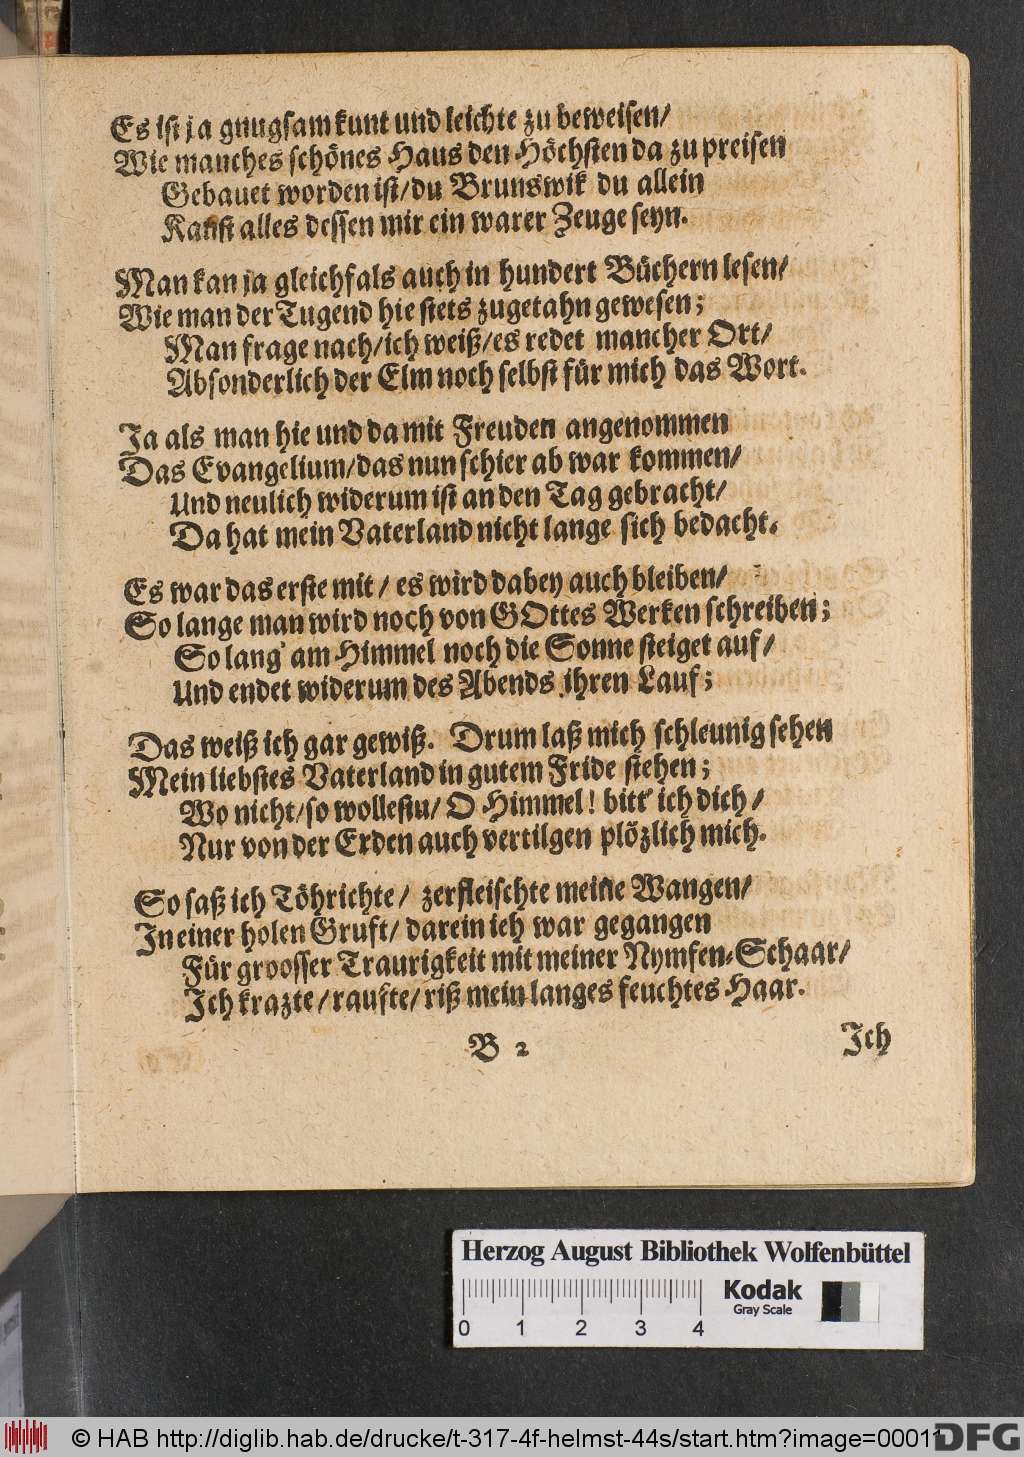 Es ist ja gnugsam kunt und leichte zu beweisen/
Wie manches schönes Haus den Höchsten da zu preisen
Gebauet worden ist/du Brunswik du allein
Kanst alles dessen mir ein warer Zeuge seyn.
Man kan ja gleichfals auch in hundert Büchern lesen/
Wie man der Tugend hie stets zugetahn gewesen;
Man frage nach/ich weiß/es redet mancher Ort/
Absonderlich der Elm noch selbst für mich das Wort.
Ja als man hie und da mit Freuden angenommen
Das Evangelium/das nun schier ab war kommen/
Und neulich widerum ist an den Tag gebracht/
Da hat mein Vaterland nicht lange sich bedacht.
Es war das erste mit/ es wird dabey auch bleiben/
So lange man wird noch von GOttes Werken schreiben;
So lang' am Himmel noch die Sonne steiget auf/
Und endet widerum des Abends ihren Lauf;
Das weiß ich gar gewiß. Drum laß mich schleunig sehen
Mein liebstes Vaterland in gutem Fride stehen;
Wo nicht/so wollestu/ O Himmel! bitt' ich dich/
Nur von der Erden auch vertilgen plözlich mich.
So saß ich Töhrichte/ zerfleischte meine Wangen/
In einer holen Gruft/ darein ich war gegangen
Für groosser Traurigkeit mit meiner Nymfen-Schaar/
Ich krazte/raufte/riß mein langes feuchtes Haar.
B 2
Ich
Herzog August Bibliothek Wolfenbüttel
Kodak
Gray Scale
0 1 2 3 4
© HAB http://diglib.hab.de/drucke/t-317-4f-helmst-44s/start.htm?image=00011
DFG